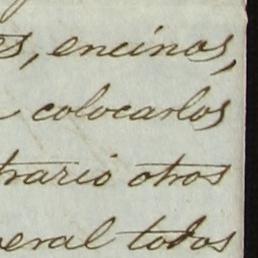 s, encinos,
colocarlos
trario otros
neral todos